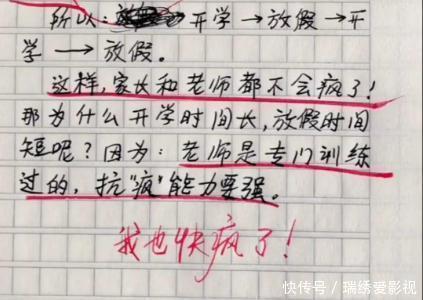 所以：开学→放假→开
学→放假。
这样，家长和老师都不会疯了！
那为什么开学时间长，放假时间
短呢？因为：老师是专门训练
过的，抗“疯”能力要强。
我也快疯了！
快传号/瑞绣爱影视